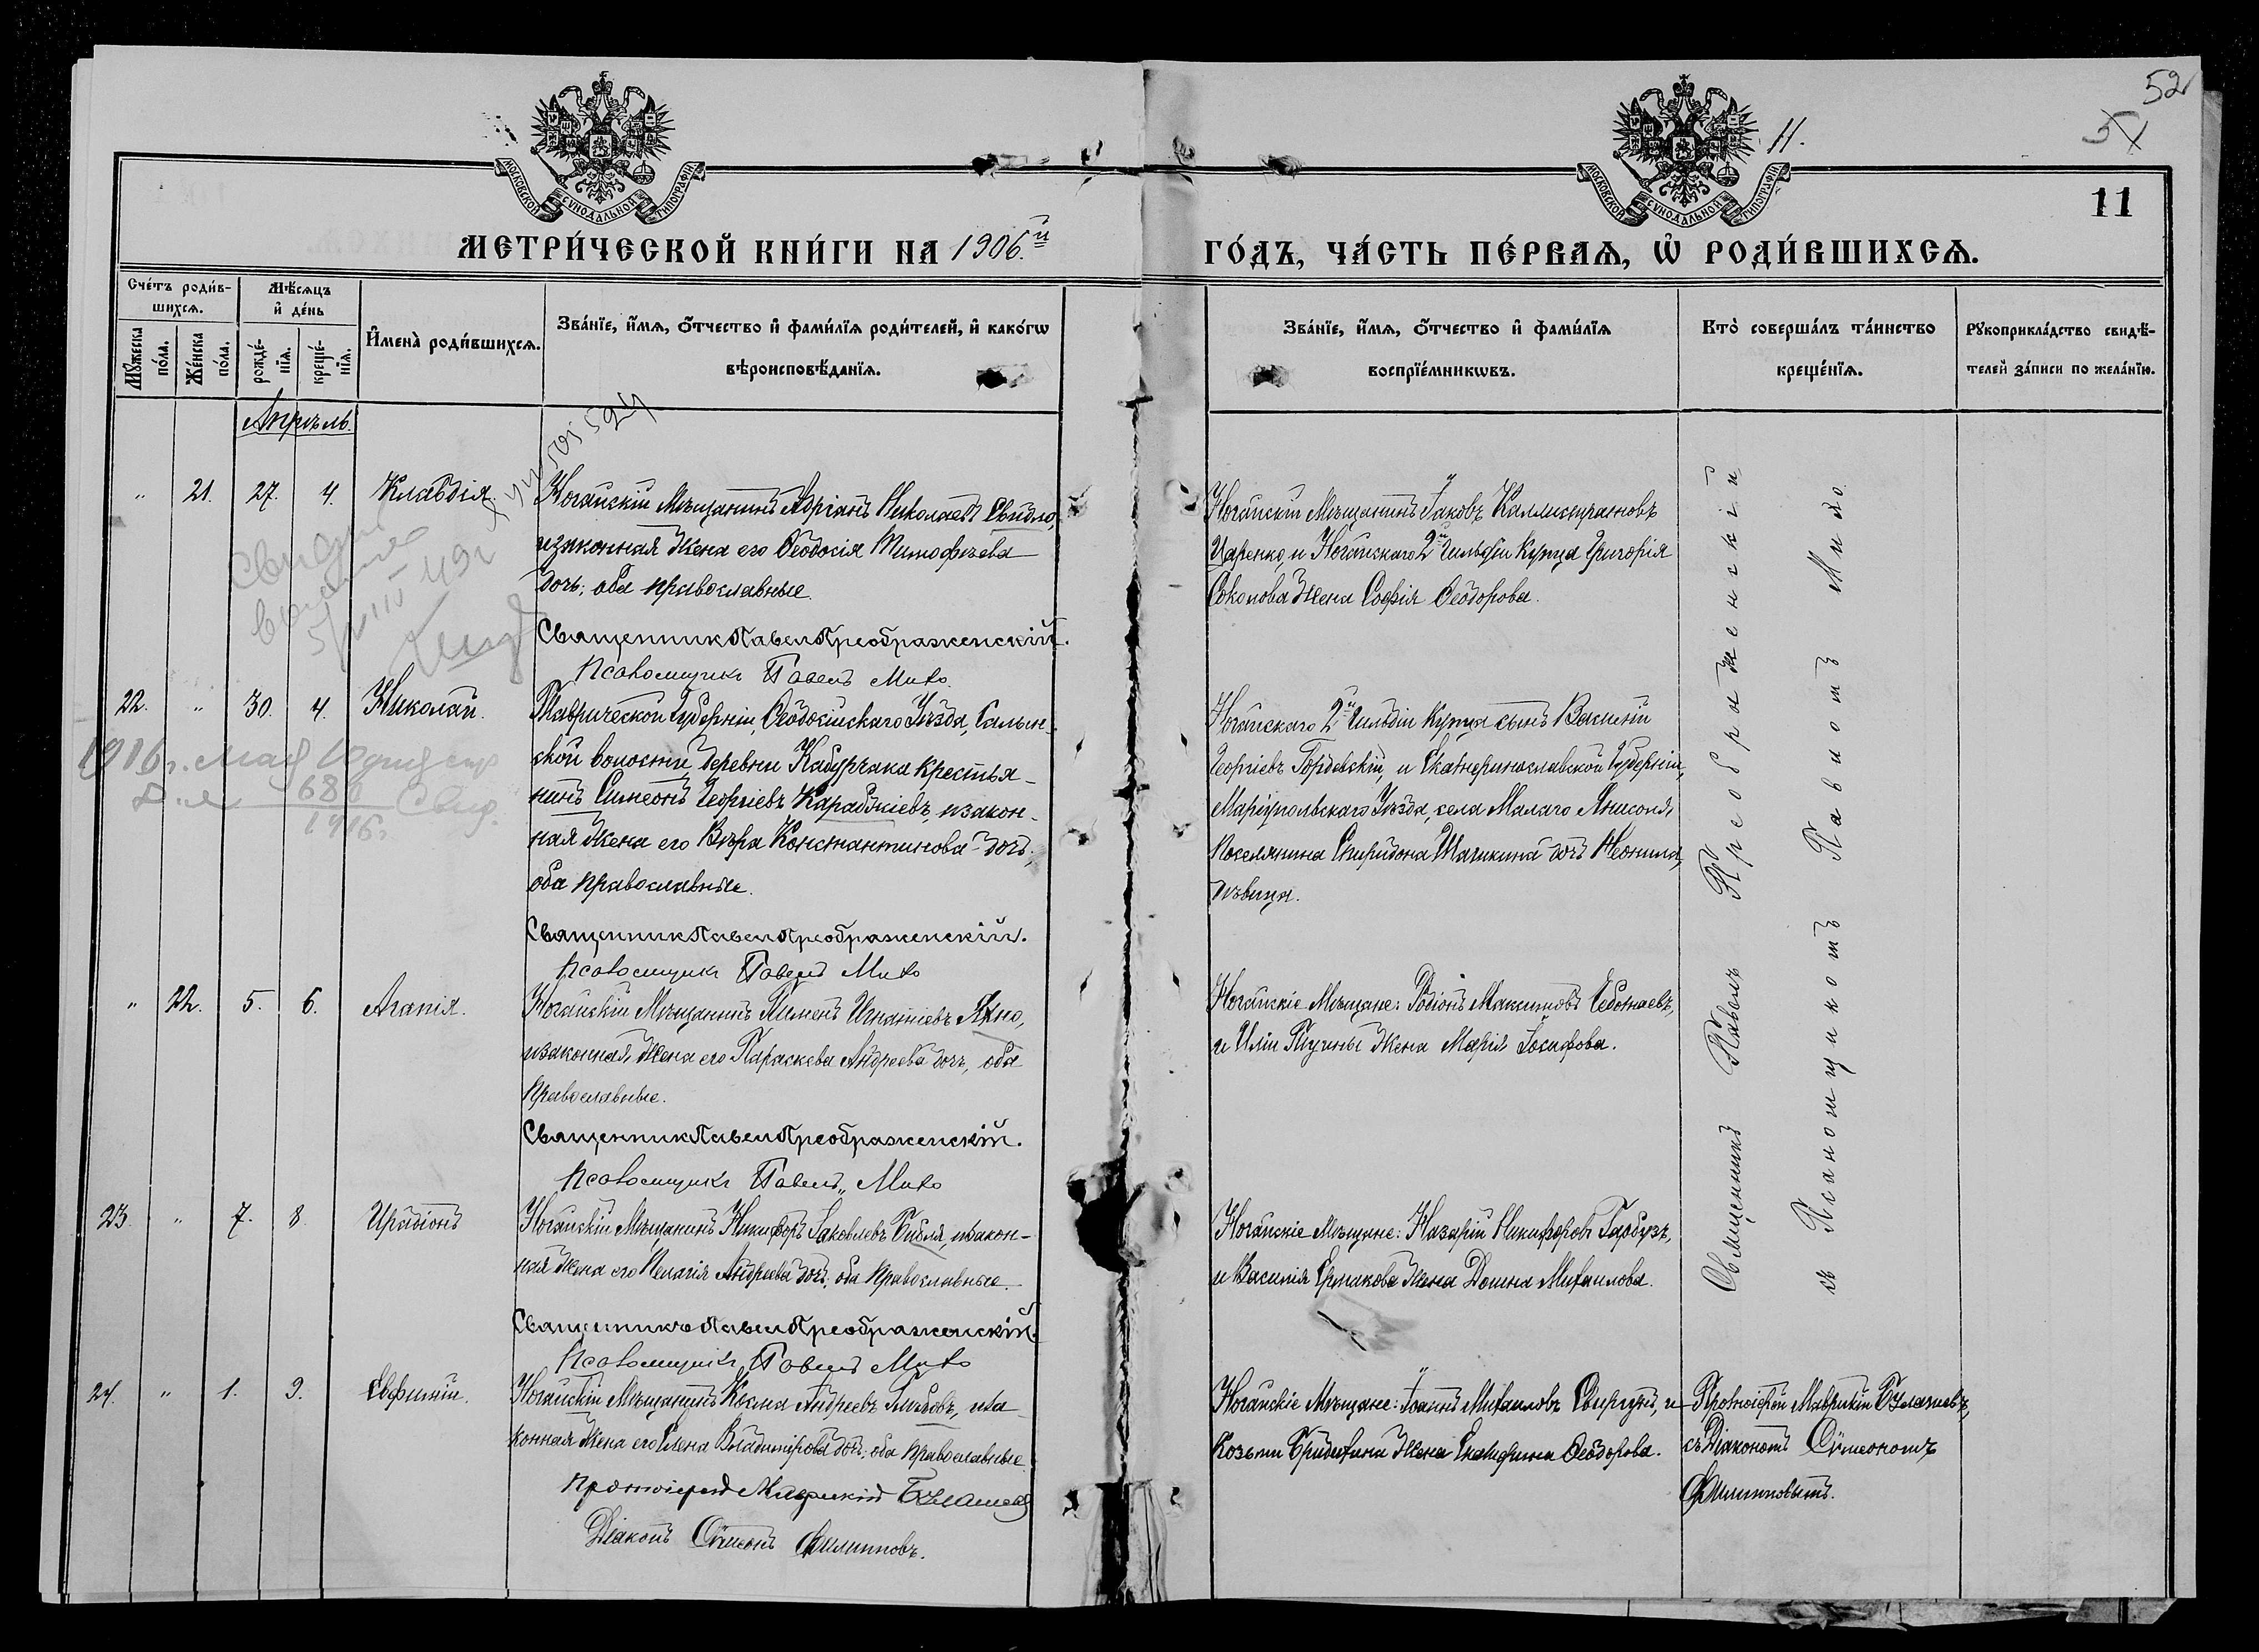 52
51
11.
МОСКОВСКОЙ СѴНОДАЛЬНОЙ ТИПОГРАФІИ
МОСКОВСКОЙ СѴНОДАЛЬНОЙ ТИПОГРАФІИ
11
МЕТРИ́ЧЕСКОЙ КНИ́ГИ НА 1906.й ГО́ДЪ, ЧА́СТЬ ПЕ́РВАѦ, Ѡ РОДИ́ВШИХСѦ.
Сче́тъ роди́в-
шихсѧ.
Мꙋ́жеска по́ла.
Же́нска по́ла.
Мѣ́сѧцъ
и҆ де́нь
рожде́-
нїѧ.
креще́-
нїѧ.
И҆мена̀ роди́вшихсѧ.
Зва́нїе, и҆́мѧ, ѻ҆́тчество и҆ фами́лїѧ роди́телей, и҆ како́гѡ
вѣроисповѣ́данїѧ.
Зва́нїе, и҆́мѧ, ѻ҆́тчество и҆ фами́лїѧ
воспрїе́мникѡвъ.
Кто̀ соверша́лъ та́инство
креще́нїѧ.
Рꙋкоприкла́дство свидѣ́-
телей за́писи по жела́нїю.
Апрѣль.
" 21. 27. 4. Клавдія.
Ногайскій Мѣщанинъ Адріанъ Николаевъ Свидло,
и законная жена его Ѳеодосія Тимофѣева
дочь; оба православные.
Священник Павел Преображенскій.
Псаломщикъ Павелъ Михо
Ногайскій Мѣщанинъ Іаковъ Каллистратовъ
Царенко, и Ногайскаго 2й гильдіи Купца Григорія
Соколова жена Софія Ѳеодорова.
22. " 30. 4. Николай.
Таврической Губерніи, Ѳеодосійскаго Уѣзда, Салын-
ской волости деревни Кабурчака крестья-
нинъ Симеонъ Георгіевъ Караджіевъ, и закон-
ная жена его Вѣра Константинова дочь;
оба православные.
Священник Павел Преображенскій.
Псаломщикъ Павелъ Михо
Ногайскаго 2й гильдіи Купца сынъ Василій
Георгіевъ Гордевскій, и Екатеринославской Губерніи,
Маріупольскаго Уѣзда, села Малаго Янисоля,
поселянина Спиридона Шапкина дочь Неонила,
дѣвица.
" 22. 5. 6. Агапія.
Ногайскій Мѣщанинъ Пименъ Игнатіевъ Яхно,
и законная жена его Параскева Андреева дочь, оба
православные.
Священник Павел Преображенскій.
Псаломщикъ Павелъ Михо
Ногайскіе Мѣщане: Родіонъ Максимовъ Чеботаевъ,
и Иліи Пугины жена Марія Іосифова.
23. " 7. 8. Иродіонъ
Ногайскій Мѣщанинъ Никифоръ Іаковлевъ Библя, и закон-
ная жена его Пелагія Андреева дочь; оба православные.
Священникъ Павел Преображенскій.
Псаломщикъ Павелъ Михо
Ногайскіе Мѣщане: Назарій Никифоровъ Гарбузъ,
и Василія Ермакова жена Домна Михаилова.
24. " 1. 9. Евфимій.
Ногайскій Мѣщанинъ Косма Андреевъ Глибовъ, и за-
конная жена его Елена Владимірова дочь; оба православные.
Протоіерей Маврикій
Діаконъ Сѵмеонъ Филипповъ.
Ногайскіе Мѣщане: Іоаннъ Михаиловъ Свиргунъ, и
Козьмы жена Екатерина Ѳеодорова.
Священникъ Павелъ Преображенскій
съ Псаломщикомъ Павломъ Михо.
Протоіерей Маврикій
съ Діакономъ Сѵмеономъ
Филипповымъ.
1916 г. мая
680
1916 г.
Свид.